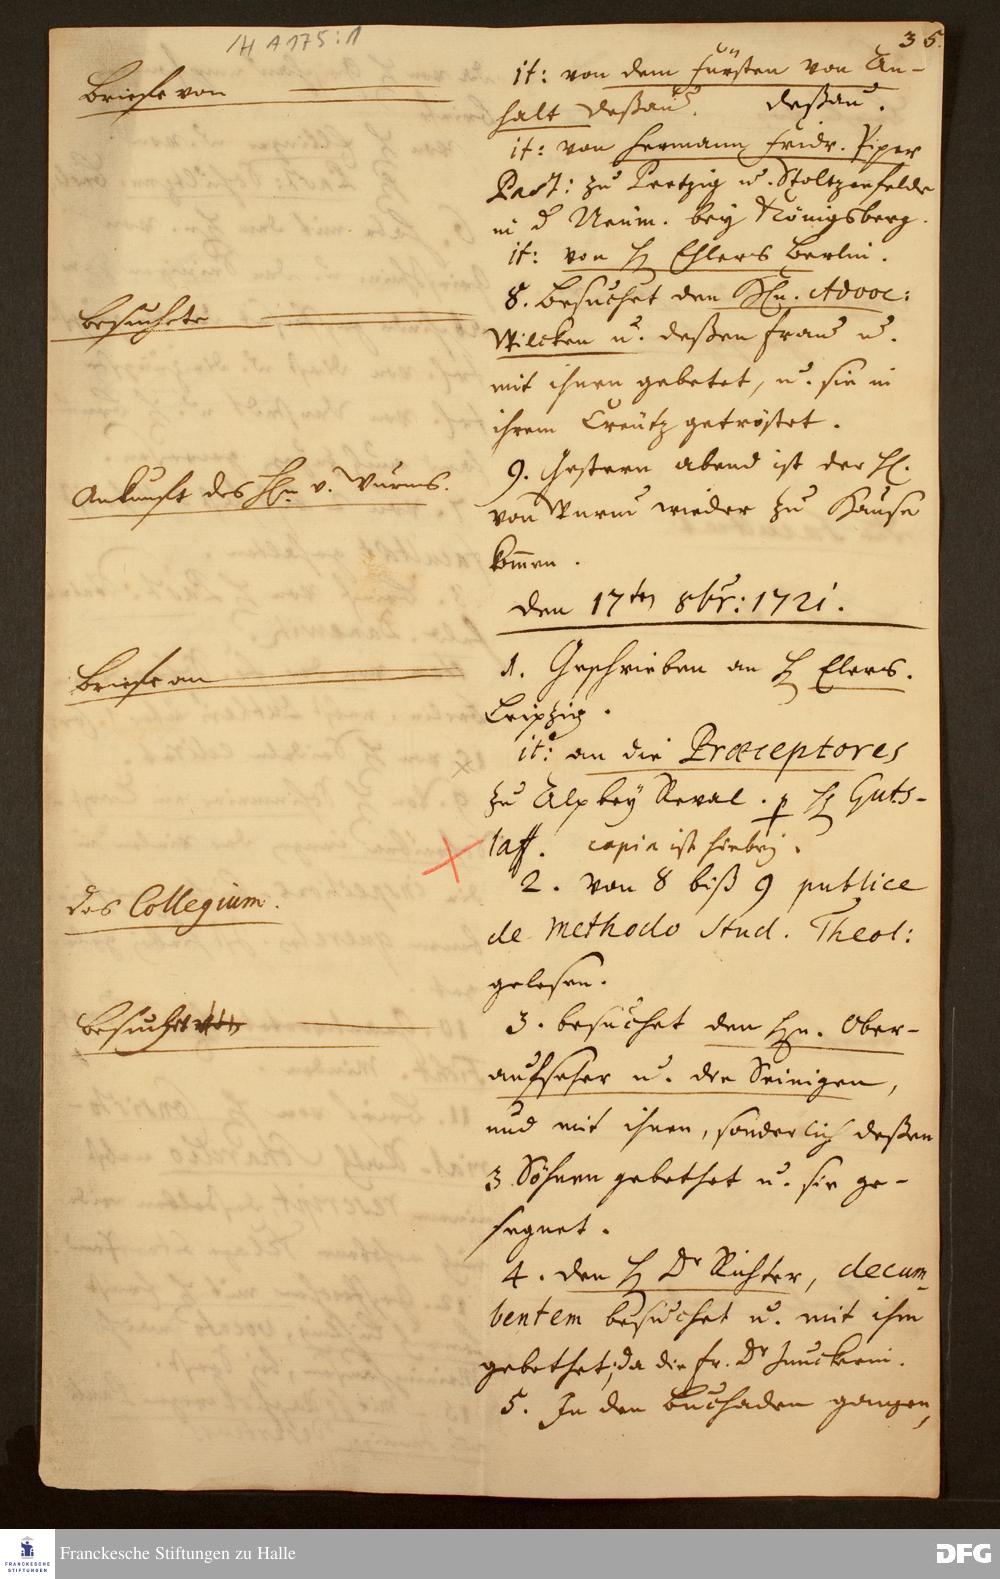 /H A 175:1
35.
Briefe von
it: von dem Fürsten von An-
halt Deßau. Deßau.
it: von Hermann Fridr. Piper
Past: zu Pretzig u. Stoltzenfelde
in d Neum. bey Königsberg.
it: von H Ehlers Berlin.
besuchete
8. Besuchet den Hn. Advoc:
Wilcken u. deßen Frau u.
mit ihnen gebetet, u. sie in
ihrem Creütz getröstet.
Ankunft des Hn v. Wurms.
9. Gestern abend ist der H.
von Wurm wieder zu Hause
kommen.
den 17ten 8br: 1721.
Briefe an
1. Geschrieben an H Elers.
Leipzig.
it: an die Præceptores
zu Alp bey Reval. p H Guts-
laff. copia ist hiebey.
des Collegium.
2. von 8 biß 9 publice
de Methodo Stud. Theol:
gelesen.
besuchet
3. besuchet den Hn. Ober-
aufseher u. die Seinigen,
und mit ihnen, sonderlich deßen
3 Söhnen gebethet u. sie ge-
segnet.
4. den H Dr Richter, decum-
bentem besuchet u. mit ihm
gebethet; da die Fr. Dr Junckerin.
5. In den Buchladen gangen,
FRANCKESCHE
STIFTUNGEN
Franckesche Stiftungen zu Halle
DFG